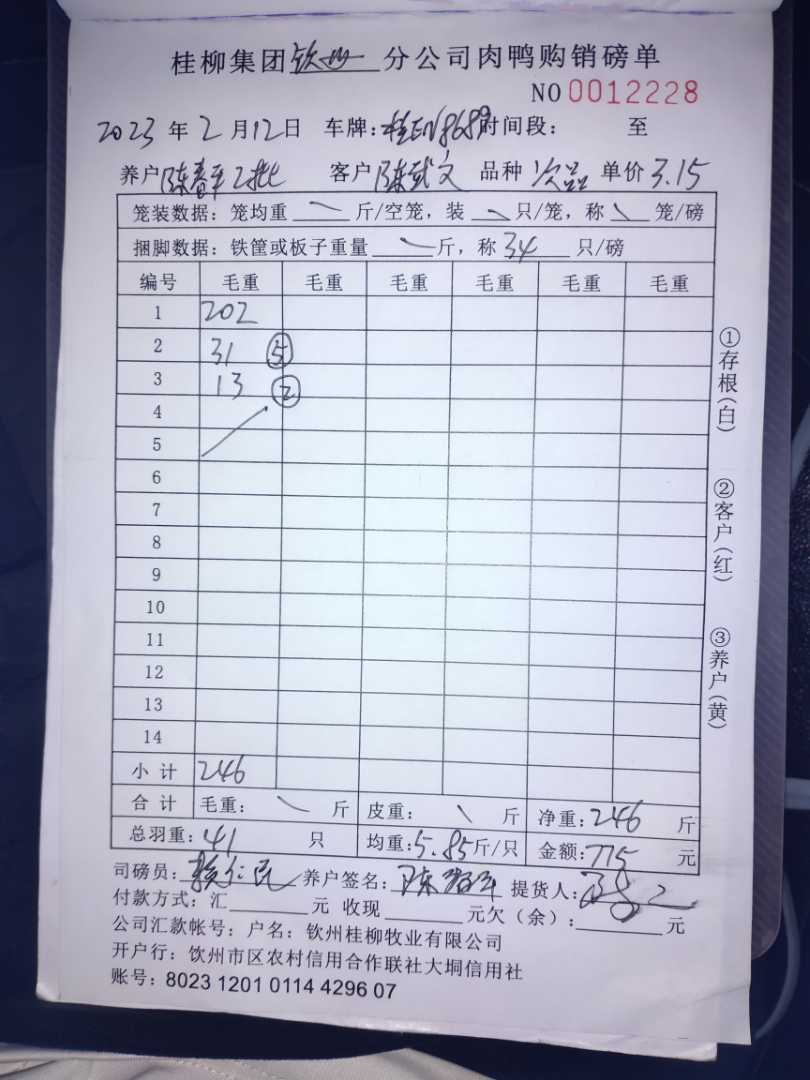 桂柳集团钦州分公司肉鸭购销磅单
NO 0012228
2023 年 2 月 12 日 车牌: 时间段: 至
养户 陈春平2批 客户 陈武文 品种 次品 单价 3.15
笼装数据: 笼均重 斤/空笼, 装 只/笼, 称 笼/磅
捆脚数据: 铁筐或板子重量 斤, 称 34 只/磅
编号 毛重 毛重 毛重 毛重 毛重 毛重
1 202
2 31 ⑤
3 13 ②
4
5
6
7
8
9
10
11
12
13
14
小计 246
合计 毛重: 斤 皮重: 斤 净重: 246 斤
总羽重: 41 只 均重: 5.85 斤/只 金额: 775 元
司磅员: 养户签名: 提货人:
付款方式: 汇 元 收现 元欠(余): 元
公司汇款帐号: 户名: 钦州桂柳牧业有限公司
开户行: 钦州市区农村信用合作联社大垌信用社
账号: 8023 1201 0114 4296 07
①存根(白)
②客户(红)
③养户(黄)